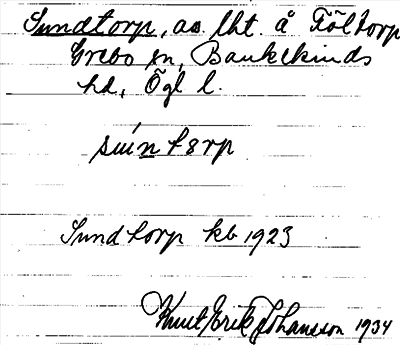 Sundtorp, ao. lht. å Föltorp
Grebo sn, Bankekinds
hd, Ögl l.
sun tɘrp
Sundtorp kb 1923
Knut Erik Johansson 1934